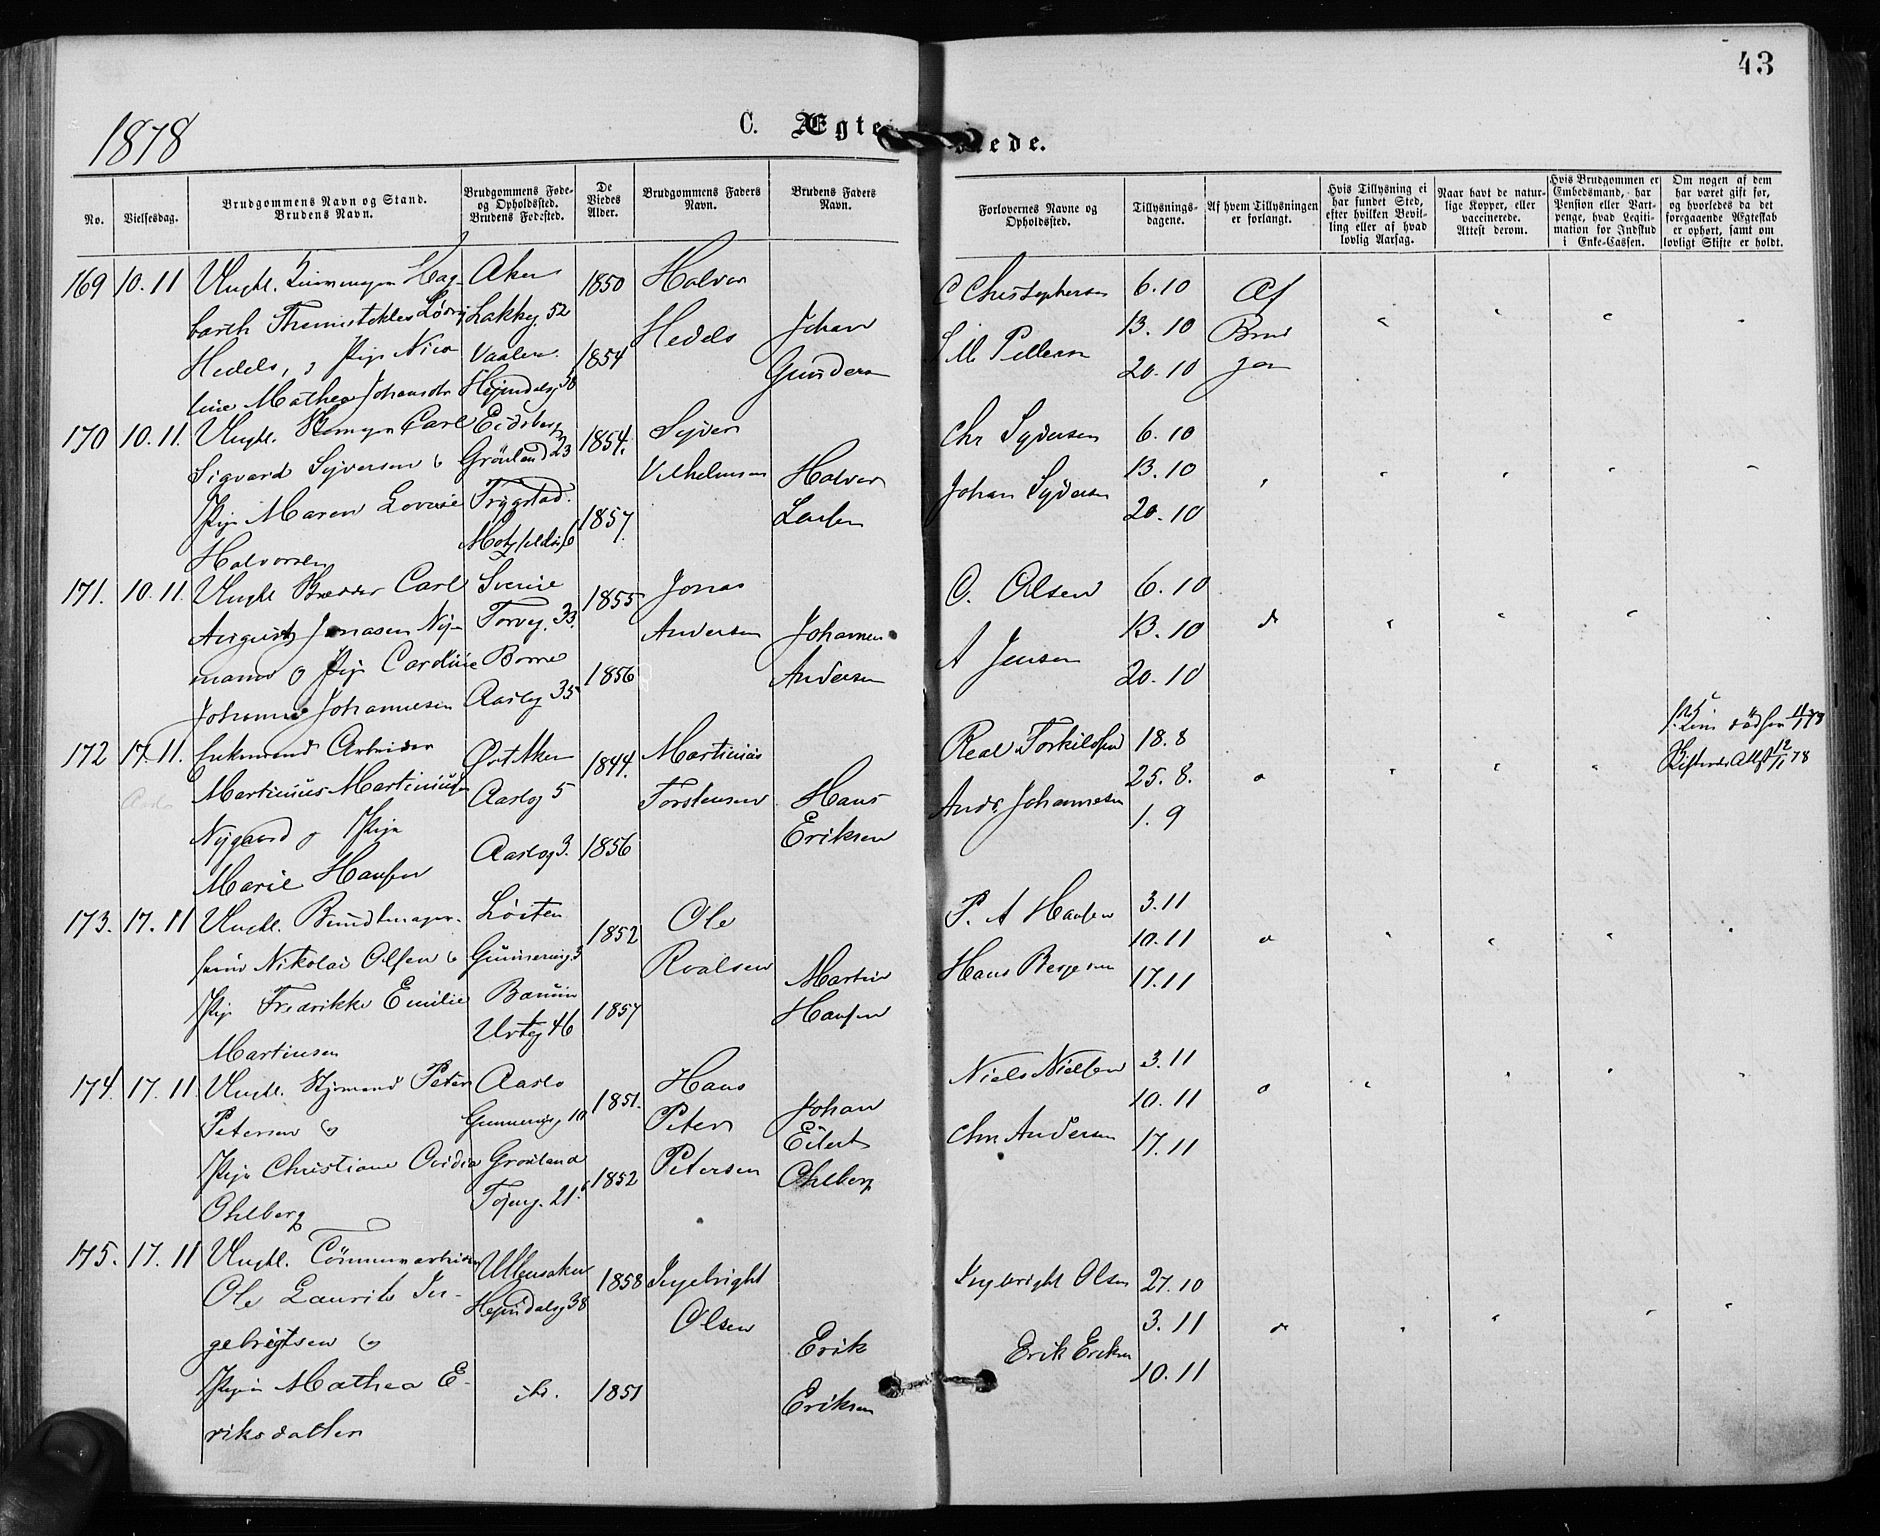 43
1878
C. Ægte
ede.
No.
Vielsesdag.
Brudgommens Navn og Stand.
Brudens Navn.
Brudgommens Føde-
og Opholdssted.
Brudens Fødested.
De
Viedes
Alder.
Brudgommens Faders
Navn.
Brudens Faders
Navn.
Forlovernes Navne og
Opholdssted.
Tillysnings-
dagene.
Af hvem Tillysningen
er forlangt.
Hvis Tillysning ei
har fundet Sted,
efter hvilken Bevil-
ling eller af hvad
lovlig Aarsag.
Naar havt de natur-
lige Kopper, eller
vaccinerede.
Attest derom.
Hvis Brudgommen er
Embedsmand, har
Pension eller Vart-
penge, hvad Legiti-
mation for Indskud
i Enke-Cassen.
Om nogen af dem
har været gift før,
og hvorledes da det
foregaaende Ægteskab
er ophørt, samt om
lovligt Skifte er holdt.
169 10.11 Ungkl. Hag-
barth Themistokles
Hedels, Pige Nico
line Mathea Johansdtr
Aker
Lakkeg. 52
Vaaler
Hejmdalsg 38
1850
1854
Halvor
Hedels
Johan
Gunders
C Christophersen
Pettersen
6.10
13.10
20.10
Af
Brud
170 10.11. Ungkl. Carl
Sigvard Syversen o
Pige Maren Lovise
Halvorsen
Eidsberg
Grönland 23
Trygstad.
1854.
1857.
Syver
Vilhelmsen
Halvor
Larsen
Chr Syversen
Johan Syversen
6.10
13.10
20.10
171. 10.11. Ungkl Carl
August Jonasen Ny-
mann o Pige Caroline
Johanne Johannesen
Sverie
Torvg. 33.
Aaslog 35
1855
1856
Jonas
Andersen
Johannes
Andersen
O. Olsen
A Jensen
6.10
13.10
20.10
172 17.11. Enkemand Arbeider
Martinius Martiniusen
Nygaard o Pige
Marie Hansen
Øst Aker
Aaslog 5
Aaslog 3.
1844.
1856
Martinius
Torstensen
Hans
Eriksen
Real Torkildsen
Andr. Johannesen
18.8
25.8.
1.9
173. 17.11 Ungkl. Bundtmager-
svend Nikolai Olsen o
Pige Fredrikke Emilie
Martinsen
Löiten
Gunnerusg 3
Urteg 46
1852
1857
Ole
Roalsen
Martin
Hansen
P. A Hansen
Hans Bergersen
3.11
10.11
17.11
174. 17.11. Ungkl. Styrmand Peter
Petersen o
Pige Christiane Ovidia
Ohlberg
Aaslo
Gunnerusg. 10
Grönland
Tøyeng. 21
1851.
1852
Hans
Peter
Petersen
Johan
Eilert
Ohlberg
Niels Nielsen
Chr. Andersen
3.11
10.11
17.11
175. 17.11 Ungkl. Tömmerarbeider
Ole Laurits In-
gebrigtsen o
Pigen Mathea E-
riksdatter
Ullensaker
Hejmdalsg 38
do.
1858
1851
Ingebright
Olsen
Erik
Eriksen
Ingebright Olsen
Erik Eriksen
27.10
3.11
10.11